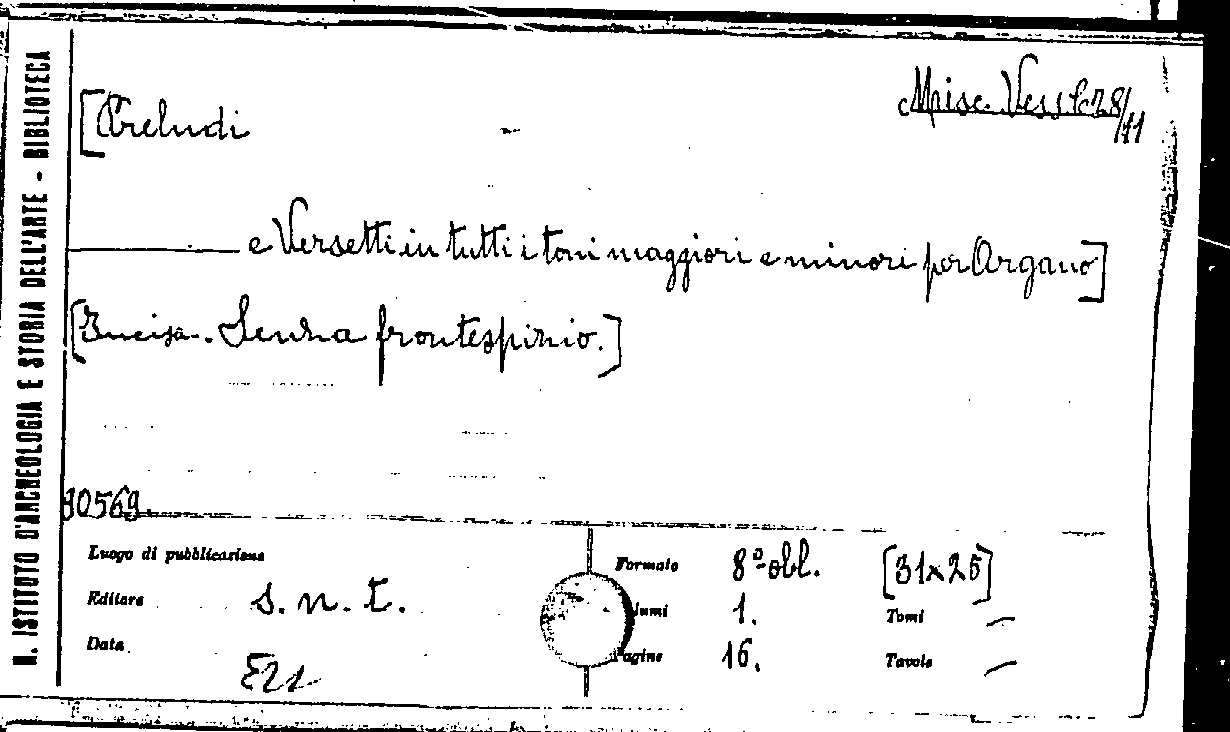 R. ISTITUTO D'ARCHEOLOGIA E STORIA DELL'ARTE - BIBLIOTECA
Misc. Vess. 28/11
[Preludi
e Versetti in tutti i toni maggiori e minori per Organo]
[Incisa. Senza frontespizio.]
80569.
Luogo di pubblicazione
Editore s. n. t.
Data
Formato 8º obl. [31x25]
lumi 1. Tomi —
Pagine 16. Tavole —